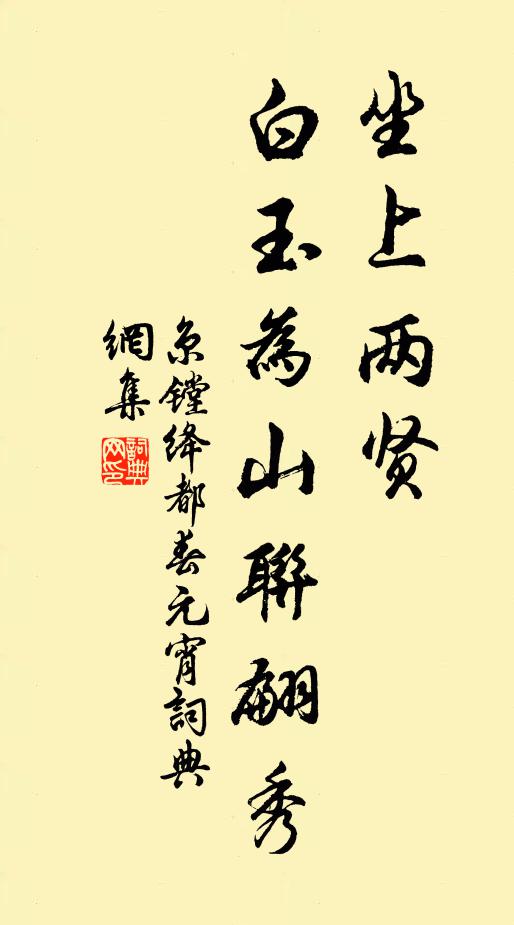 坐上两贤
白玉為山聯翩秀
京镗绛都春元宵詞典
網集
詞典
网印